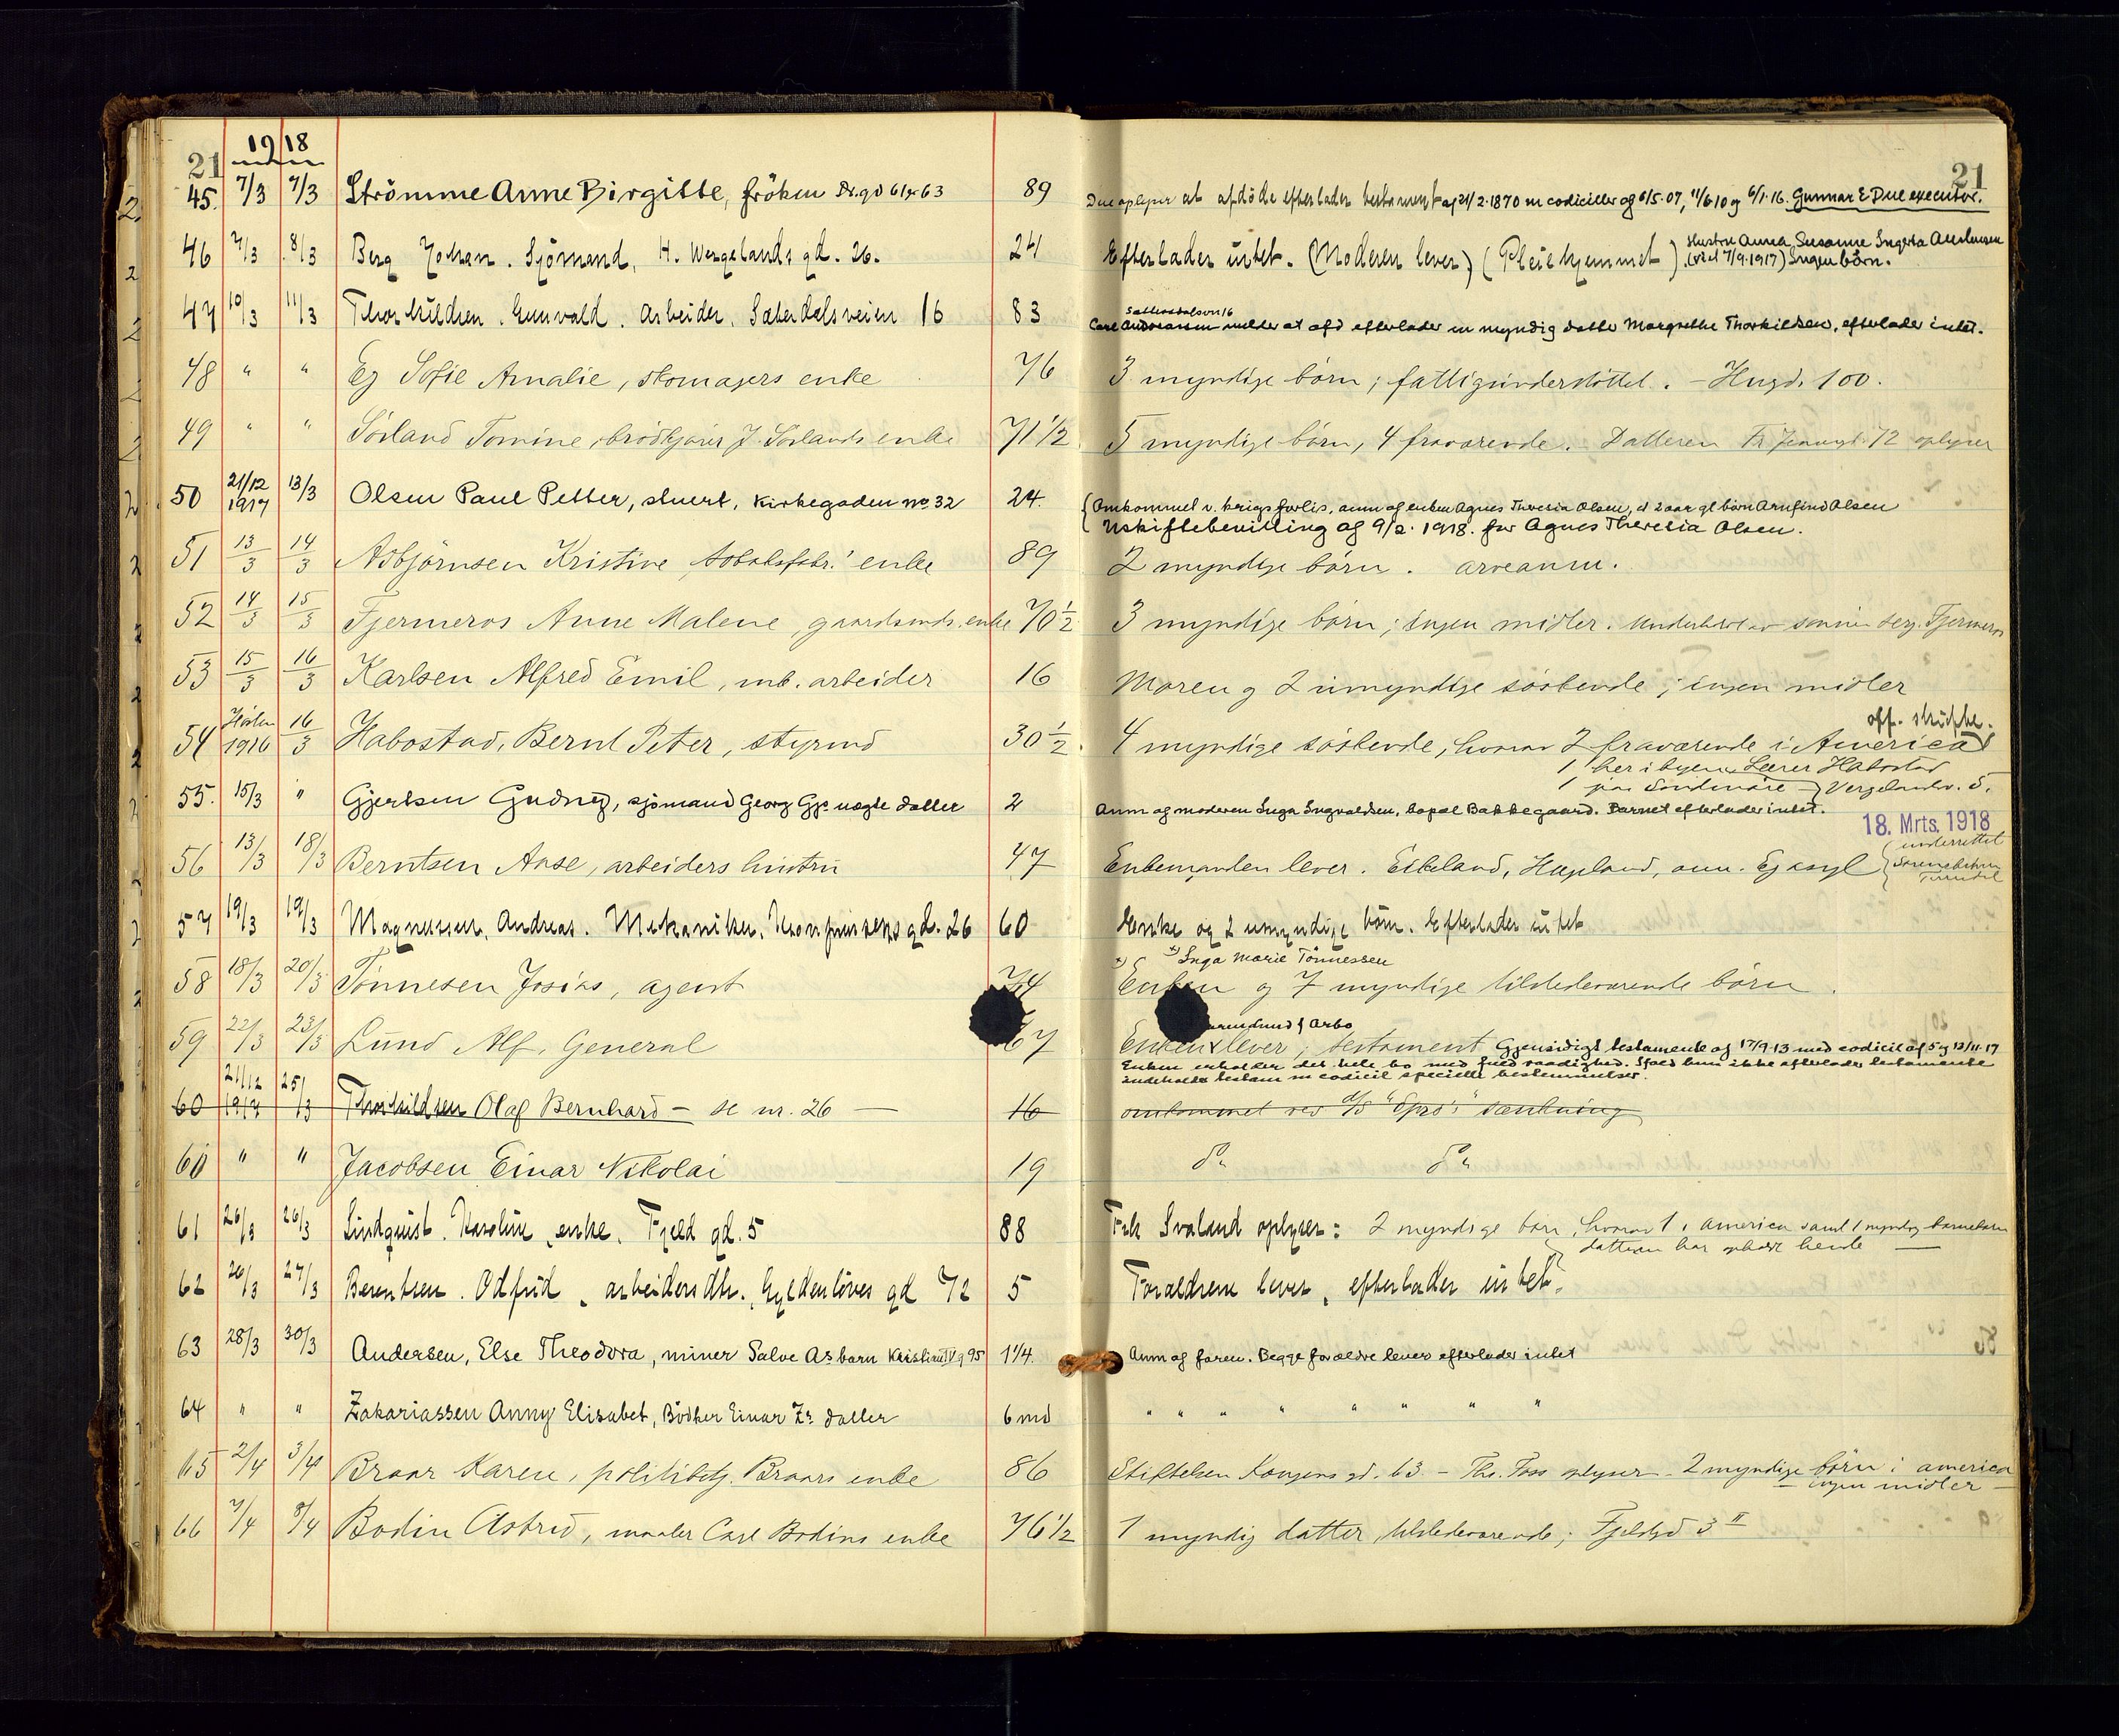 21 1918 21
45. 7/3 7/3 Strömme Anne Birgitte, fröken Dr.gd 61x63 89 Due oplyser at afdöde efterlader testament af 21/2.1870 m codiciller af 6/5.07, 11/6.10 og 6/1.16. Gunnar E Due executor.
46 7/3 8/3 Berg Johan. Sjömand, H. Wergelands gd. 26. 24 Efterlader intet. (Moderen lever) (Pleiehjemmet) Hustru Anna Susanne Ingerta
(viet 7/9.1917) Ingen börn.
47 10/3 11/3 Thorkildsen. Gunvald. Arbeider. Sæterdalsveien 16 83 Carl Andreassen melder at afd efterlader en myndig datter Margrethe Thorkildsen, efterlader intet.
48 " " Eg Sofie Amalie, skomagers enke 76 3 myndige börn; fattigunderstöttet. - Husgd. 100.
49 " " Sörland Tomine, brödkjörer J. Sörlands enke 71 1/2 5 myndige börn, 4 fraværende. Datteren 72 oplyser
50 21/12 1917 13/3 Olsen Paul Petter, stuert, Kirkegaden no. 32 24. Omkommet v. krigsforlis, anm af enken Agnes Theresia Olsen, et 2 aar gl barn Arnfind Olsen
Uskiftebevilling af 9/2. 1918. for Agnes Theresia Olsen.
51 13/3 14/3 Asbjörnsen Kristine, tobaksfabr.' enke 89 2 myndige börn. arveanm.
52 14/3 15/3 Fjermeros Anne Malene, gaardmds. enke 70 1/2 3 myndige börn; ingen midler. Underholdt av sönnen serg. Fjermeros
53 15/3 16/3 Karlsen Alfred Emil, mb. arbeider 16 Moren og 2 umyndige söskende; ingen midler
54 Hösten 1916 16/3 Habostad, Bernt Peter, styrmd 30 1/2 4 myndige söskende, hvorav 2 fraværende i America off. skifte.
1 her i byen, Lærer Habostad
1 paa Söndmöre Vergelandsv. 5.
55. 15/3 " Gjertsen Gudny, sjömand Georg Gjs uægte datter 2 Anm af moderen Inga Ingvaldsen, bopæl Bakkegaard. Barnet efterlader intet.
18. Mrts. 1918
56 13/3 18/3 Berntsen Aase, arbeiders hustru 47 Enkemanden lever. Eikeland, Hægland, anm. Eg asyl underrettet
57 19/3 19/3 Magnussen, Andreas. Mekaniker. Kronprinsens gd. 26 60 Enke og 2 umyndige börn. Efterlader intet
x) Inga Marie Tönnessen
58 18/3 20/3 Tönnesen Josias, agent 74 Enken og 7 myndige tilstedeværende börn.
59 22/3 23/3 Lund Alf, General 67 Enken lever; testament Gjensidigt testamente af 17/9.13 med codicil af 5 og 12/11.17
Enken erholder det hele bo med fuld raadighed. Ifald hun ikke efterlader testamente
indeholder testam m codicil specielle bestemmelser.
60 21/12 1917 25/3 Thorkildsen Olaf Bernhard - se nr. 26 - 16 omkommet ved d/s "Sprö's" sænkning
60 " " Jacobsen Einar Nikolai 19 do do
61 26/3 26/3 Lindquist. Karoline, enke. Fjeld gd. 5 88 Frk Svaland oplyser: 2 myndige barn, hvorav 1 i america samt 1 myndig barnebarn
datteren har ophold hende
62 26/3 27/3 Berentsen. Odfrid, arbeiders dtr. Gyldenlöves gd 72 5 Forældrene lever, efterlader intet.
63 28/3 30/3 Andersen, Else Theodora, miner Salve As barn Kristian IV g 95 1 1/4. Anm af faren. Begge forældre lever efterlader intet
64 " " Zakariassen Anny Elisabet, Bödker Einar Zs datter 6 md " " " " " " " "
65 2/4 3/4 Braar Karen, politibetj. Braars enke 86 Stiftelsen Kongens gd. 63 - Th. Foss oplyser - 2 myndige börn i america
ingen midler -
66 7/4 8/4 Bodin Astrid, maaler Carl Bodins enke 76 1/2 1 myndig datter, tilstedeværende; Fjeldgd 3 II